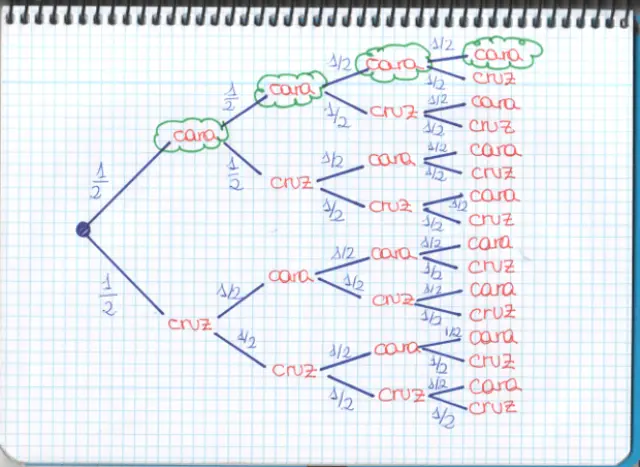 1/2 cara
1/2 cara
1/2 cruz
1/2 cara
1/2 cara
1/2 cruz
1/2 cruz
cara
1/2 cara
1/2 cara
1/2 cruz
1/2 cruz
1/2
1/2 cara
1/2 cruz
1/2 cruz
1/2 cara
1/2 cara
1/2 cruz
1/2 cara
1/2 cara
1/2 cruz
1/2
1/2 cruz
cruz
1/2 cara
1/2 cara
1/2 cruz
1/2 cruz
1/2 cara
1/2 cruz
1/2 cruz